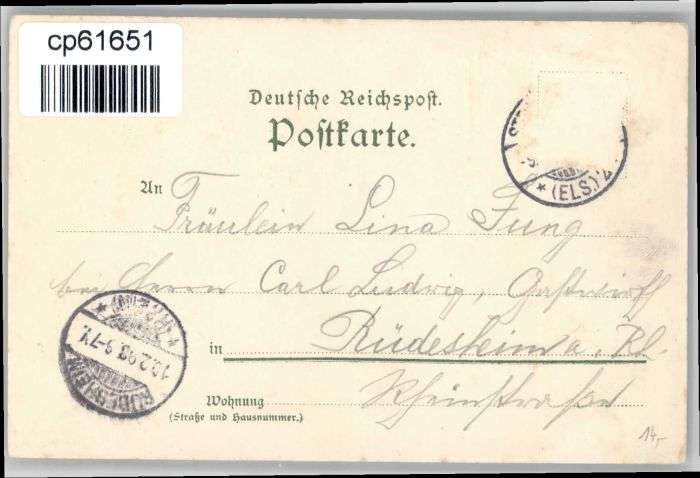 cp61651
Deutsche Reichspost.
Postkarte.
An
Fräulein Lina Jung
bei Herrn Carl Ludwig, Gastwirt
in Rüdesheim a. Rh.
Wohnung Rheinstrasse
(Straße und Hausnummer.)
(ELS.)
14,-